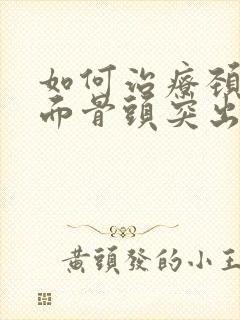 如何治療頚
而骨頭突出
黃頭發的小王